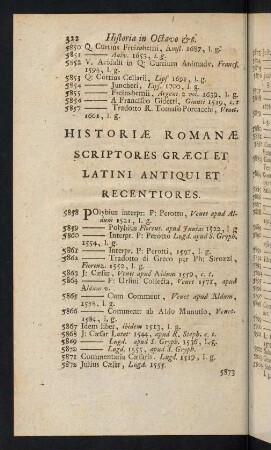 322 Historia in Octavo &c.
5850 Q. Curtius Freinshemii, Amst. 1687, l. g.
5851 —— Aubr. 1653, l. g.
5852 V. Acidalii in Q: Curtium Animadv. Francf.
1594, l. g.
5853 Q: Curtius Cellarii, Lips 1691, l. g.
5854 —— Juncheri, Lips. 1700, l. g.
5855 —— Freinshemii, Argent. 2 vol. 1639, l. g.
5856 —— A Francisco Gidetti, Giunti 1519, c. t
5857 —— Tradotto R. Tomaso Porcacchi, Venet.
1601, l. g.
HISTORIÆ ROMANÆ
SCRIPTORES GRÆCI ET
LATINI ANTIQUI ET
RECENTIORES.
5858 POlybius interpr: P: Perotto, Venet apud Al-
dum 1521, l. g.
5859 —— Polybius Florent. apud Juntas 1522, l g
5860 —— Interpr. P: Perotto Lugd. apud S. Gryph.
1554, l. g.
5861 —— Interpr. P: Perotti, 1597, l. g.
5862 —— Tradotto di Greco par Ph: Strozzi,
Florenz. 1552, l. g.
5863 J: Cæsar, Venet apud Aldum 1559, c. t.
5864 —— F: Ursini Collecta, Venet 1571, apud
Aldum v.
5865 —— Cum Comment, Venet apud Aldum,
1578, l. g.
5866 —— Comment: ab Aldo Manutio, Venet.
1584, l. g.
5867 Idem liber, ibidem 1513, l. g.
5868 J: Cæsar Lutet 1544, apud R. Steph. c. t.
5869 —— Lugd. apud S. Gryph. 1536, l. g.
5870 —— Lugd. 1555, apud S. Gryph.
5871 Commentaria Cæsaris. Lugd. 1519, l. g.
5872 Julius Cæsar, Lugd. 1555.
5873